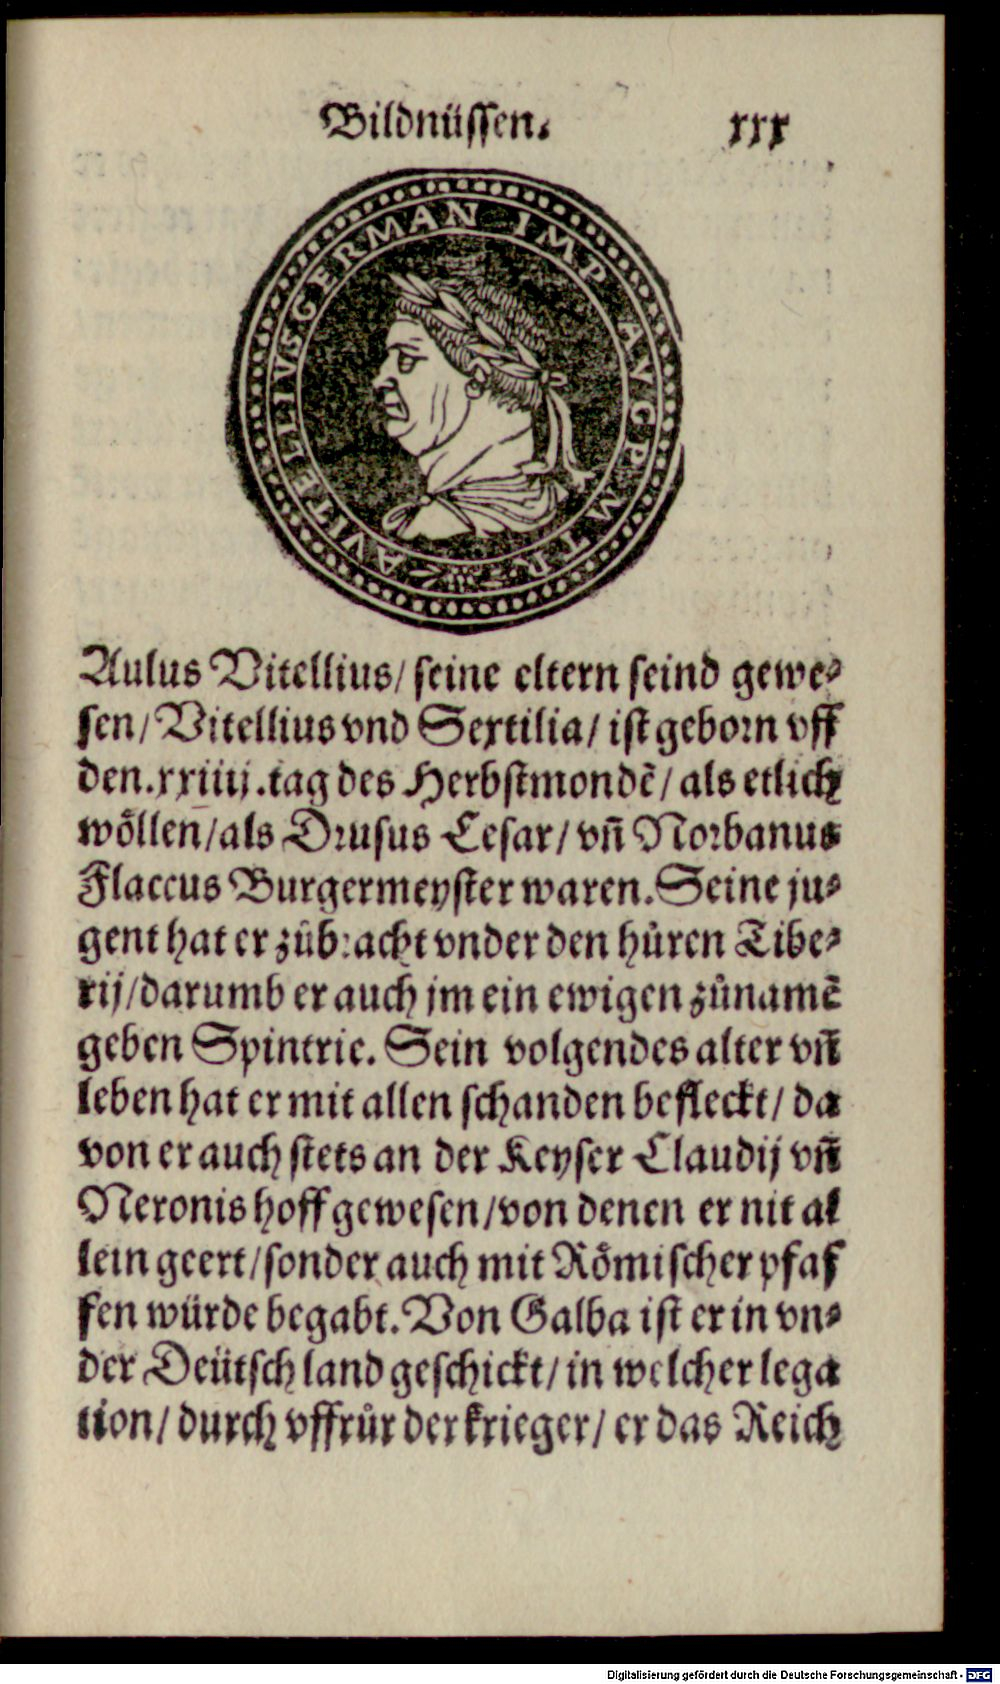 Bildnüssen. xxx
A VITELLIVS GERMAN IMP AVG P M TR
Aulus Vitellius/ seine eltern seind gewe⸗
sen/ Vitellius vnd Sextilia/ ist geborn vff
den.xxiiij.tag des Herbstmondẽ/ als etlich
wöllen/als Drusus Cesar/ vñ Norbanus
Flaccus Burgermeyster waren. Seine ju⸗
gent hat er zůbracht vnder den hůren Tibe⸗
rij/darumb er auch jm ein ewigen zůnamẽ
geben Spintrie. Sein volgendes alter vñ
leben hat er mit allen schanden befleckt/ da
von er auch stets an der Keyser Claudij vñ
Neronis hoff gewesen/von denen er nit al
lein geert/sonder auch mit Römischer pfaf
fen würde begabt. Von Galba ist er in vn⸗
der Deütsch land geschickt/ in welcher lega
tion/ durch vffrůr der krieger/ er das Reich
Digitalisierung gefördert durch die Deutsche Forschungsgemeinschaft - DFG